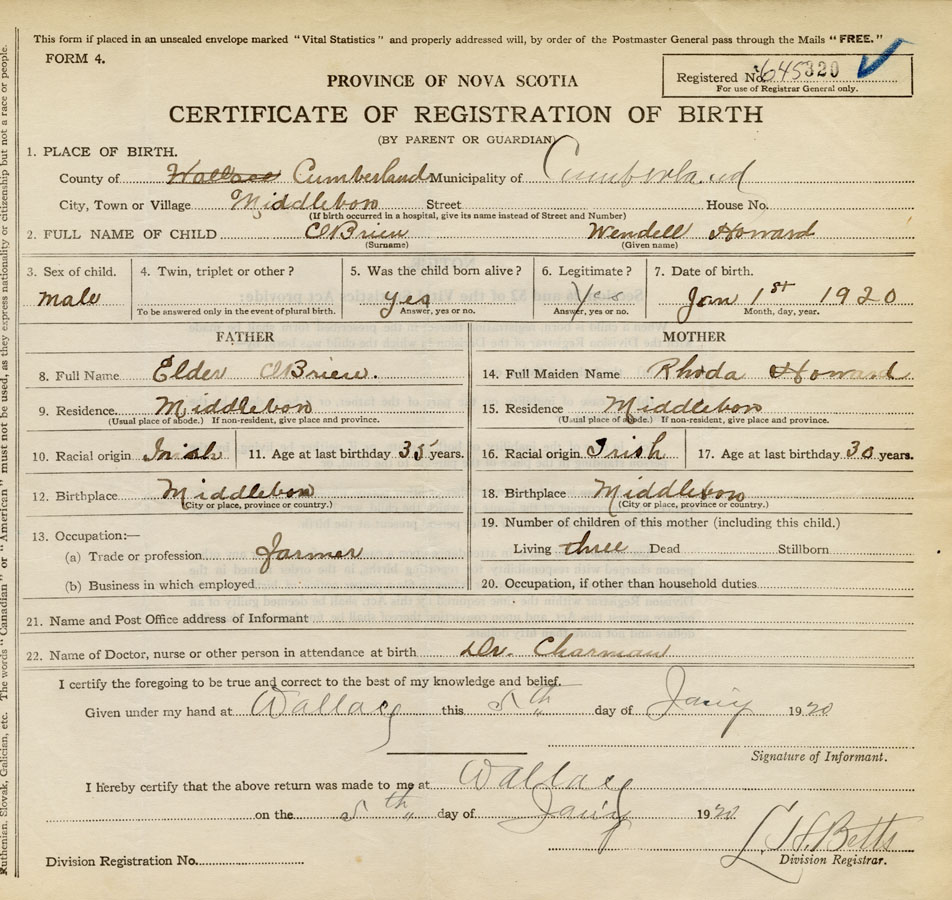 This form if placed in an unsealed envelope marked "Vital Statistics" and properly addressed will, by order of the Postmaster General pass through the Mails "FREE."
FORM 4.
Registered No. 645320
For use of Registrar General only.
PROVINCE OF NOVA SCOTIA
CERTIFICATE OF REGISTRATION OF BIRTH
(BY PARENT OR GUARDIAN)
1. PLACE OF BIRTH.
County of Wallace Cumberland Municipality of Cumberland
City, Town or Village Middleboro Street House No.
(If birth occurred in a hospital, give its name instead of Street and Number)
2. FULL NAME OF CHILD OBrien Wendell Howard
(Surname) (Given name)
3. Sex of child. 4. Twin, triplet or other? 5. Was the child born alive? 6. Legitimate? 7. Date of birth.
male yes Yes Jan 1st 1920
To be answered only in the event of plural birth. Answer, yes or no. Answer, yes or no. Month, day, year.
FATHER
8. Full Name Elder OBrien.
9. Residence Middleboro
(Usual place of abode.) If non-resident, give place and province.
10. Racial origin Irish 11. Age at last birthday 35 years.
12. Birthplace Middleboro
(City or place, province or country.)
13. Occupation:—
(a) Trade or profession farmer
(b) Business in which employed
MOTHER
14. Full Maiden Name Rhoda Howard
15. Residence Middleboro
(Usual place of abode.) If non-resident, give place and province.
16. Racial origin Irish 17. Age at last birthday 30 years.
18. Birthplace Middleboro
(City or place, province or country.)
19. Number of children of this mother (including this child.)
Living three Dead Stillborn
20. Occupation, if other than household duties
21. Name and Post Office address of Informant
22. Name of Doctor, nurse or other person in attendance at birth Dr. Charman
I certify the foregoing to be true and correct to the best of my knowledge and belief.
Given under my hand at Wallace this 5th day of Jan'y 1920
Signature of Informant.
I hereby certify that the above return was made to me at Wallace
on the 5th day of Jan'y 1920
L. H. Betts
Division Registration No. Division Registrar.
Ruthenian, Slovak, Galician, etc. The words "Canadian" or "American" must not be used, as they express nationality or citizenship but not a race or people.